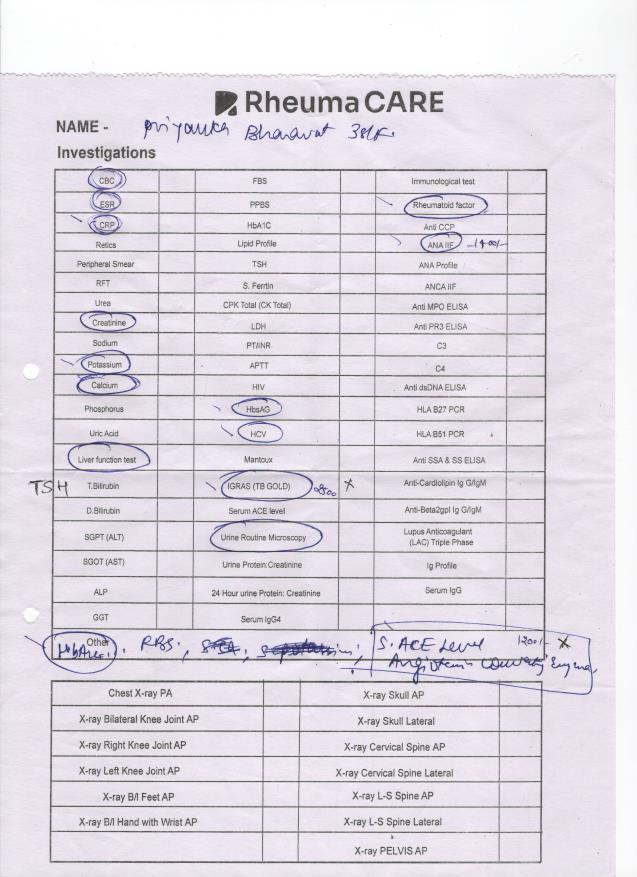 RheumaCARE
NAME - Priyanka Bharawat 38/F.
Investigations
CBC FBS Immunological test
ESR PPBS Rheumatoid factor
CRP HbA1C Anti CCP
Retics Lipid Profile ANA IIF -1400/-
Peripheral Smear TSH ANA Profile
RFT S. Ferritin ANCA IIF
Urea CPK Total (CK Total) Anti MPO ELISA
Creatinine LDH Anti PR3 ELISA
Sodium PT/INR C3
Potassium APTT C4
Calcium HIV Anti dsDNA ELISA
Phosphorus HbsAG HLA B27 PCR
Uric Acid HCV HLA B51 PCR
Liver function test Mantoux Anti SSA & SS ELISA
TSH T.Bilirubin IGRAS (TB GOLD) X Anti-Cardiolipin Ig G/IgM
D.Bilirubin Serum ACE level Anti-Beta2gpl Ig G/IgM
SGPT (ALT) Urine Routine Microscopy Lupus Anticoagulant
(LAC) Triple Phase
SGOT (AST) Urine Protein:Creatinine Ig Profile
ALP 24 Hour urine Protein: Creatinine Serum IgG
GGT Serum IgG4
Other
RBS, S. ACE Level 1200/- X
Angiotensin Converting Enzyme
Chest X-ray PA X-ray Skull AP
X-ray Bilateral Knee Joint AP X-ray Skull Lateral
X-ray Right Knee Joint AP X-ray Cervical Spine AP
X-ray Left Knee Joint AP X-ray Cervical Spine Lateral
X-ray B/l Feet AP X-ray L-S Spine AP
X-ray B/l Hand with Wrist AP X-ray L-S Spine Lateral
X-ray PELVIS AP